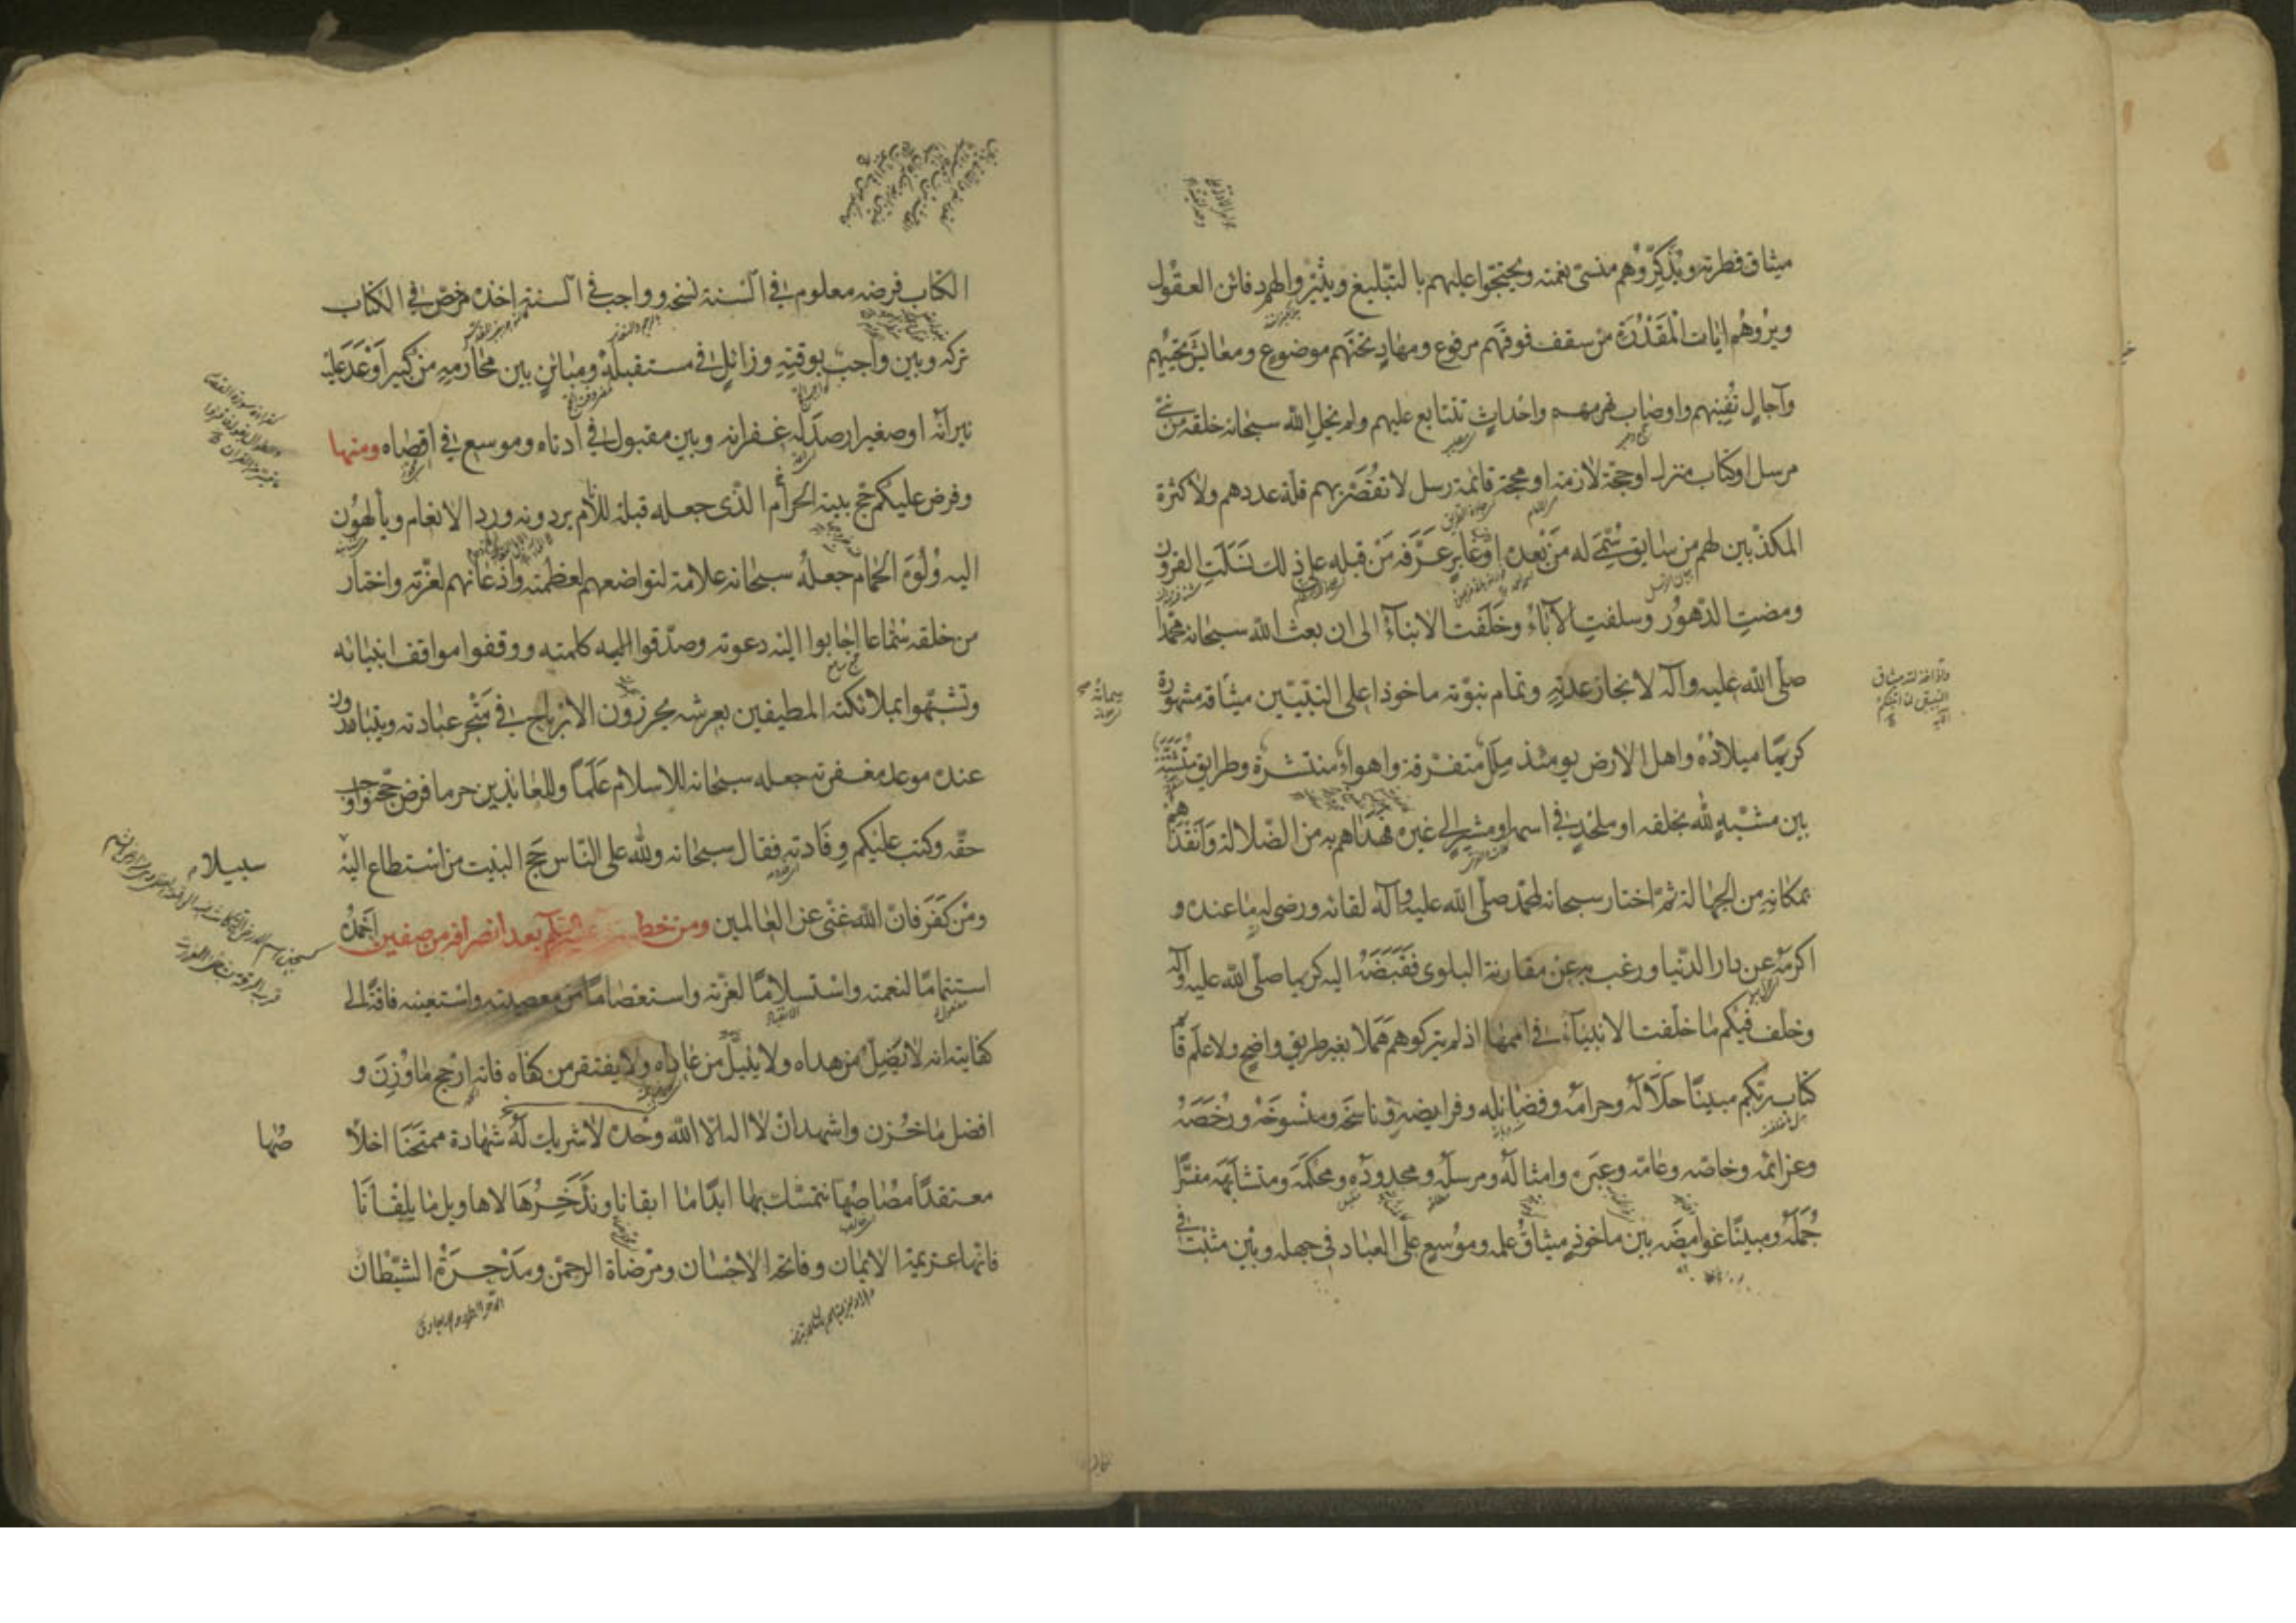 ميثاق فطرته ويذكّروهم منسيّ نعمته ويحتجّوا عليهم بالتبليغ ويثيروا لهم دفائن العقول
ويروهم آيات المقدرة من سقف فوقهم مرفوع ومهاد تحتهم موضوع ومعايش تحييهم
وآجال تفنيهم واوصاب تهرمهم واحداث تتتابع عليهم ولم يخل الله سبحانه خلقه من نبيّ
مرسل او كتاب منزل او حجّة لازمة او محجّة قائمة رسل لا تقصّر بهم قلّة عددهم ولا كثرة
المكذّبين لهم من سابق سُمّي له من بعده او غابر عرّفه من قبله على ذلك نسلت القرون
ومضت الدّهور وسلفت الآباء وخلفت الابناء الى ان بعث الله سبحانه محمّدا
صلّى الله عليه وآله لانجاز عدته وتمام نبوّته ماخوذا على النبيّين ميثاقه مشهورة
كريمًا ميلاده واهل الارض يومئذ ملل متفرّقة واهواء منتشرة وطرايق متشتّتة
بين مشبّه لله بخلقه او ملحد في اسمه او مشير الى غيره فهداهم به من الضّلالة وانقذهم
بمكانه من الجهالة ثمّ اختار سبحانه لمحمّد صلّى الله عليه وآله لقائه ورضى له ما عنده و
اكرمه عن دار الدّنيا ورغب به عن مقارنة البلوى فقبضه اليه كريما صلّى الله عليه وآله
وخلّف فيكم ما خلّفت الانبياء في اممها اذ لم يتركوهم هملا بغير طريق واضح ولا علم قائم
كتاب ربّكم مبيّنا حلاله وحرامه وفضائله وفرايضه وناسخه ومنسوخه ورخصه
وعزائمه وخاصّه وعامّه وعبره وامثاله ومرسله ومحدوده ومحكمه ومتشابهه مفسّرا
جمله ومبيّنا غوامضه بين ماخوذ ميثاق علمه وموسع على العباد في جهله وبين مثبت في
واذ اخذ الله ميثاق
النبيّين لما آتيتكم
الآية
سماته
الكتاب فرضه معلوم في السّنة نسخه وواجب في السنة اخذه مرخّص في الكتاب
تركه وبين واجب بوقته وزائل في مستقبله ومباين بين محارمه من كبير اوعد عليه
نيرانه او صغير ارصد له غفرانه وبين مقبول في ادناه وموسع في اقصاه ومنها
وفرض عليكم حجّ بيته الحرام الّذي جعله قبلة للانام يردونه ورد الانعام ويألهون
اليه ولوه الحمام جعله سبحانه علامة لتواضعهم لعظمته واذعانهم لعزّته واختار
من خلقه سمّاعا اجابوا اليه دعوته وصدّقوا اليه كلمته ووقفوا مواقف انبيائه
وتشبّهوا بملائكته المطيفين بعرشه يحرزون الارباح في متجر عبادته ويتبادرون
عنده موعد مغفرته جعله سبحانه للاسلام علمًا وللعائذين حرما فرض حجّه واوجب
حقّه وكتب عليكم وفادته فقال سبحانه ولله على النّاس حجّ البيت من استطاع اليه
سبيلا
ومن كفر فانّ الله غنيّ عن العالمين ومن خطبة له عليه السّلام بعد انصرافه من صفين احمده
استتمامًا لنعمته واستسلامًا لعزّته واستعصامًا من معصيته واستعينه فاقة الى
كفايته انه لا يضلّ من هداه ولا يئل من عاداه ولا يفتقر من كفاه فانه ارجح ما وزن و
افضل ما خزن واشهد ان لا اله الّا الله وحده لا شريك له شهادة ممتحنا اخلا
صها
معتقدًا مصاصها نتمسّك بها ابدًا ما ابقانا وندّخرها لاهاويل ما يلقانا
فانّها عزيمة الايمان وفاتحة الاحسان ومرضاة الرحمن ومدحرة الشيطان